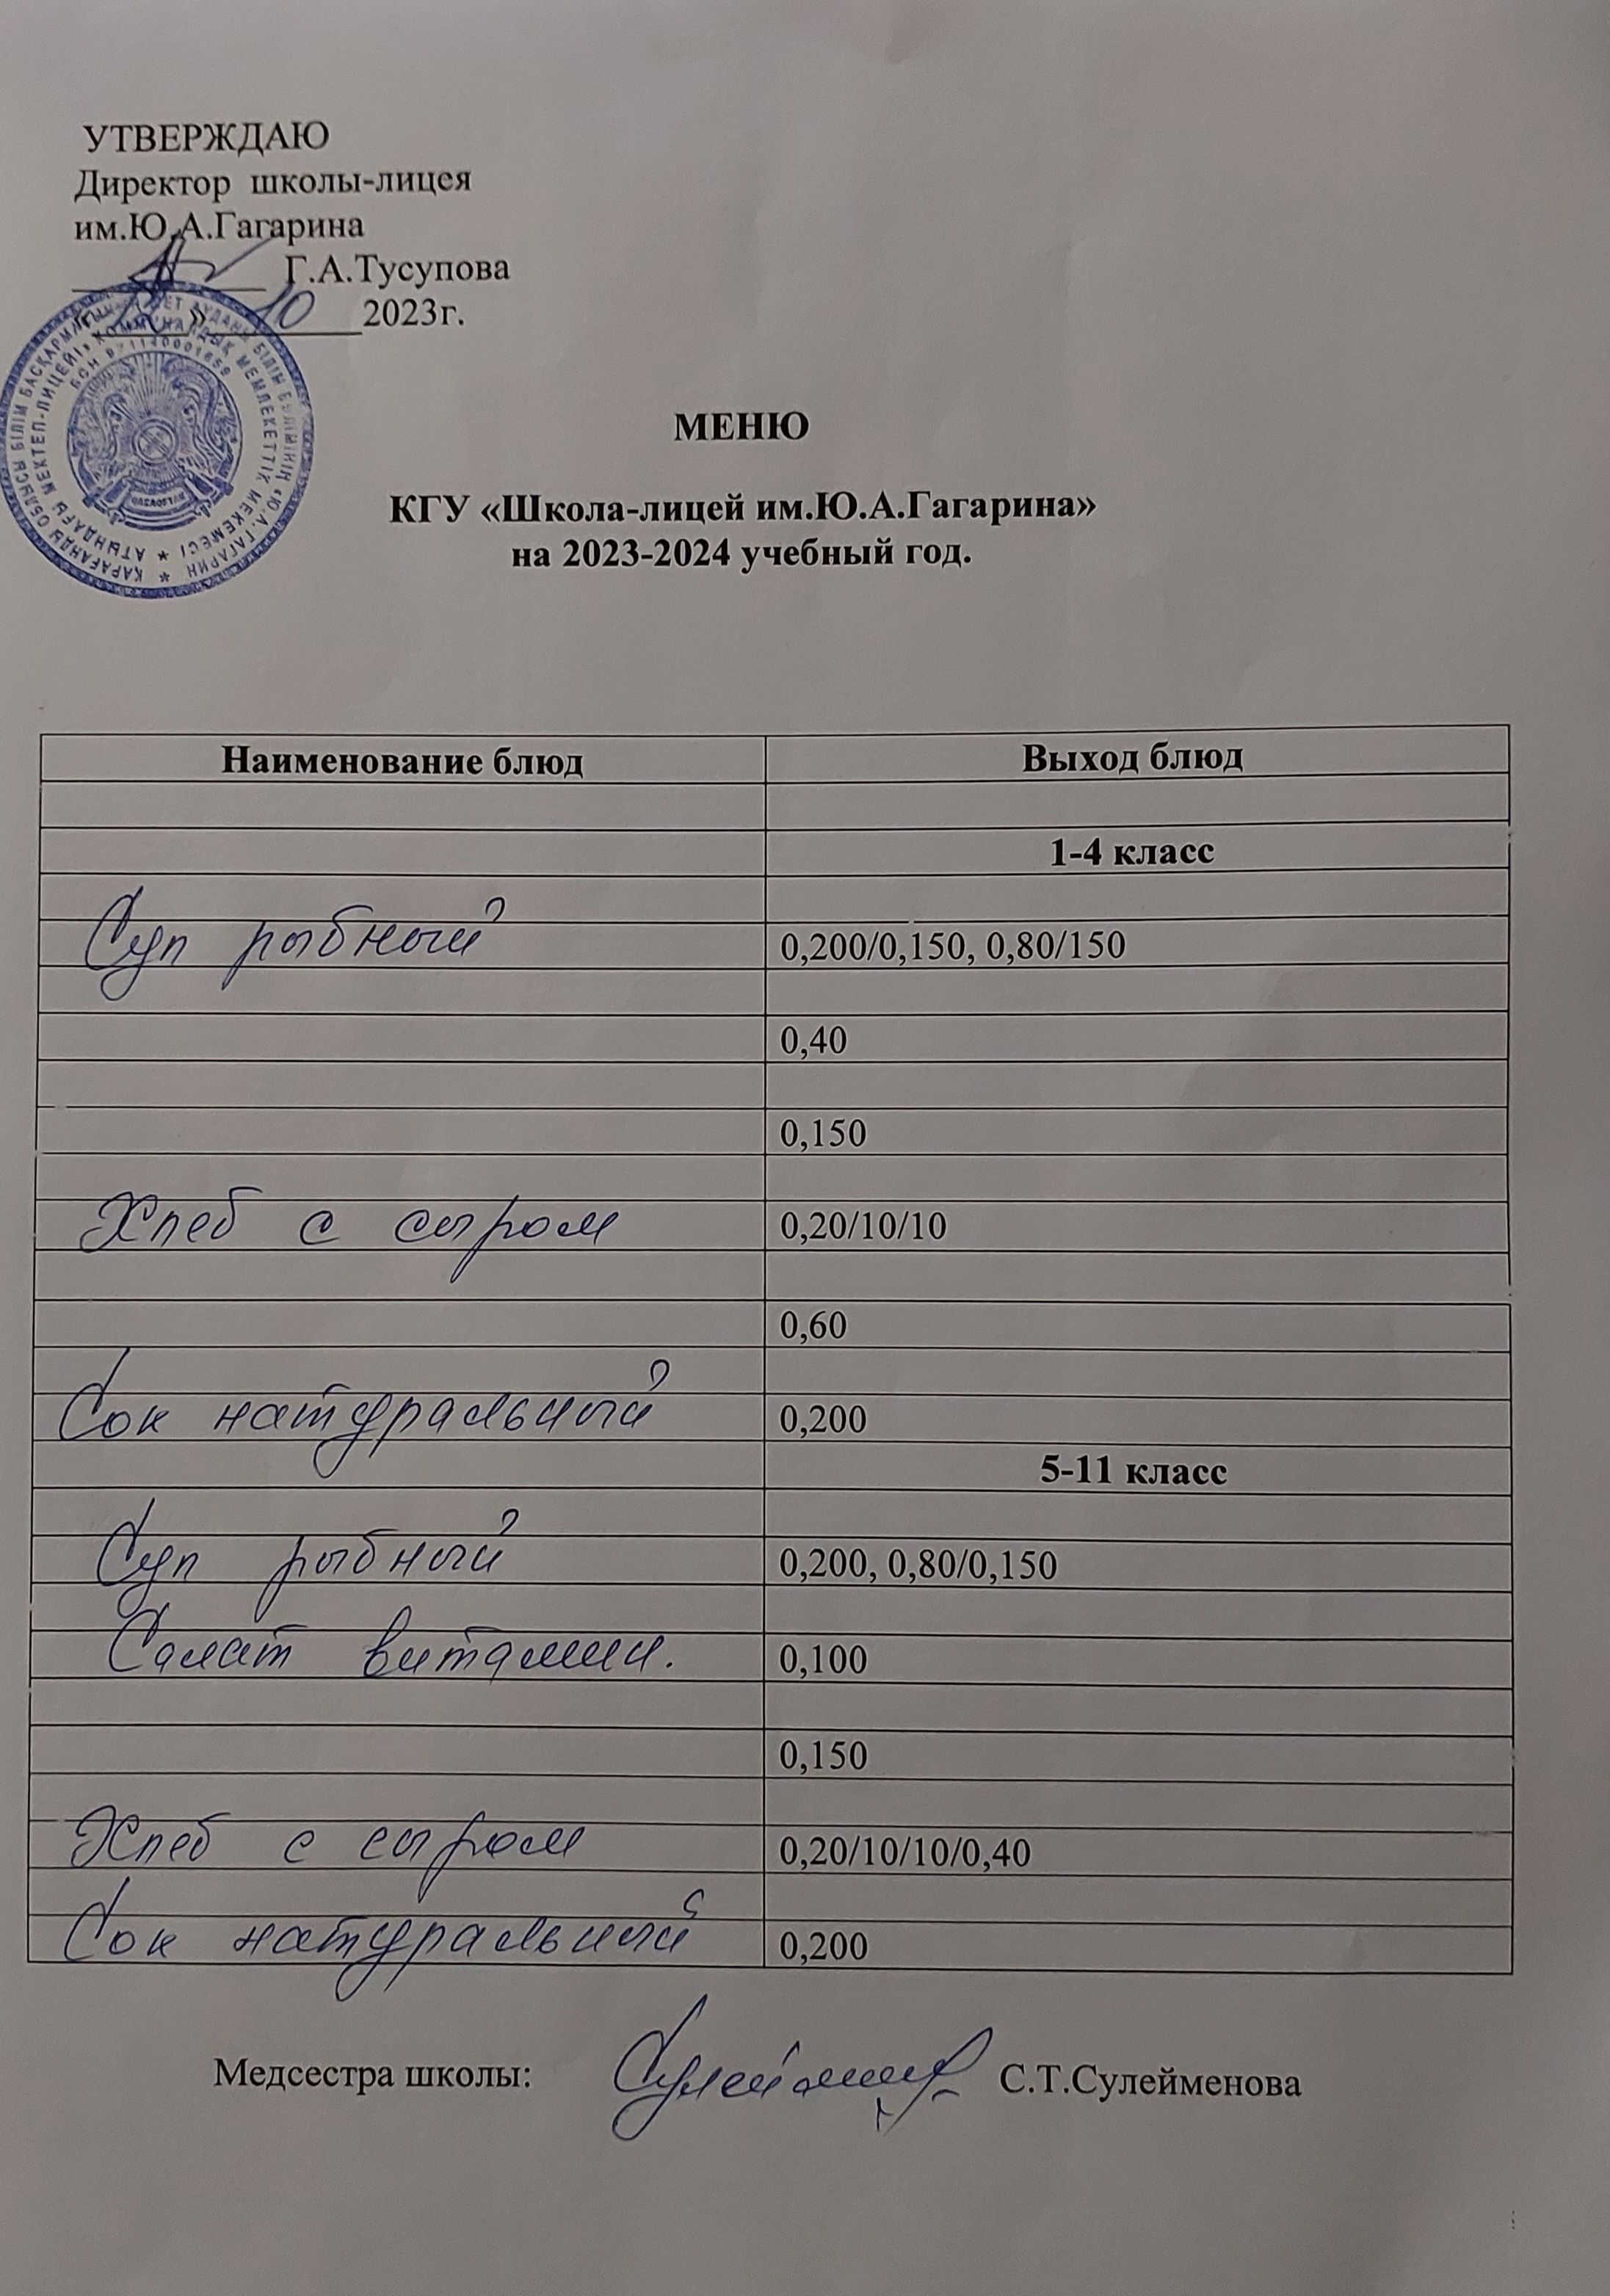 УТВЕРЖДАЮ
Директор школы-лицея
им.Ю.А.Гагарина
Г.А.Тусупова
« » 10 2023г.
МЕНЮ
КГУ «Школа-лицей им.Ю.А.Гагарина»
на 2023-2024 учебный год.
Наименование блюд Выход блюд
1-4 класс
Суп рыбный 0,200/0,150, 0,80/150
0,40
0,150
Хлеб с сыром 0,20/10/10
0,60
Сок натуральный 0,200
5-11 класс
Суп рыбный 0,200, 0,80/0,150
Салат витамин. 0,100
0,150
Хлеб с сыром 0,20/10/10/0,40
Сок натуральный 0,200
Медсестра школы: С.Т.Сулейменова